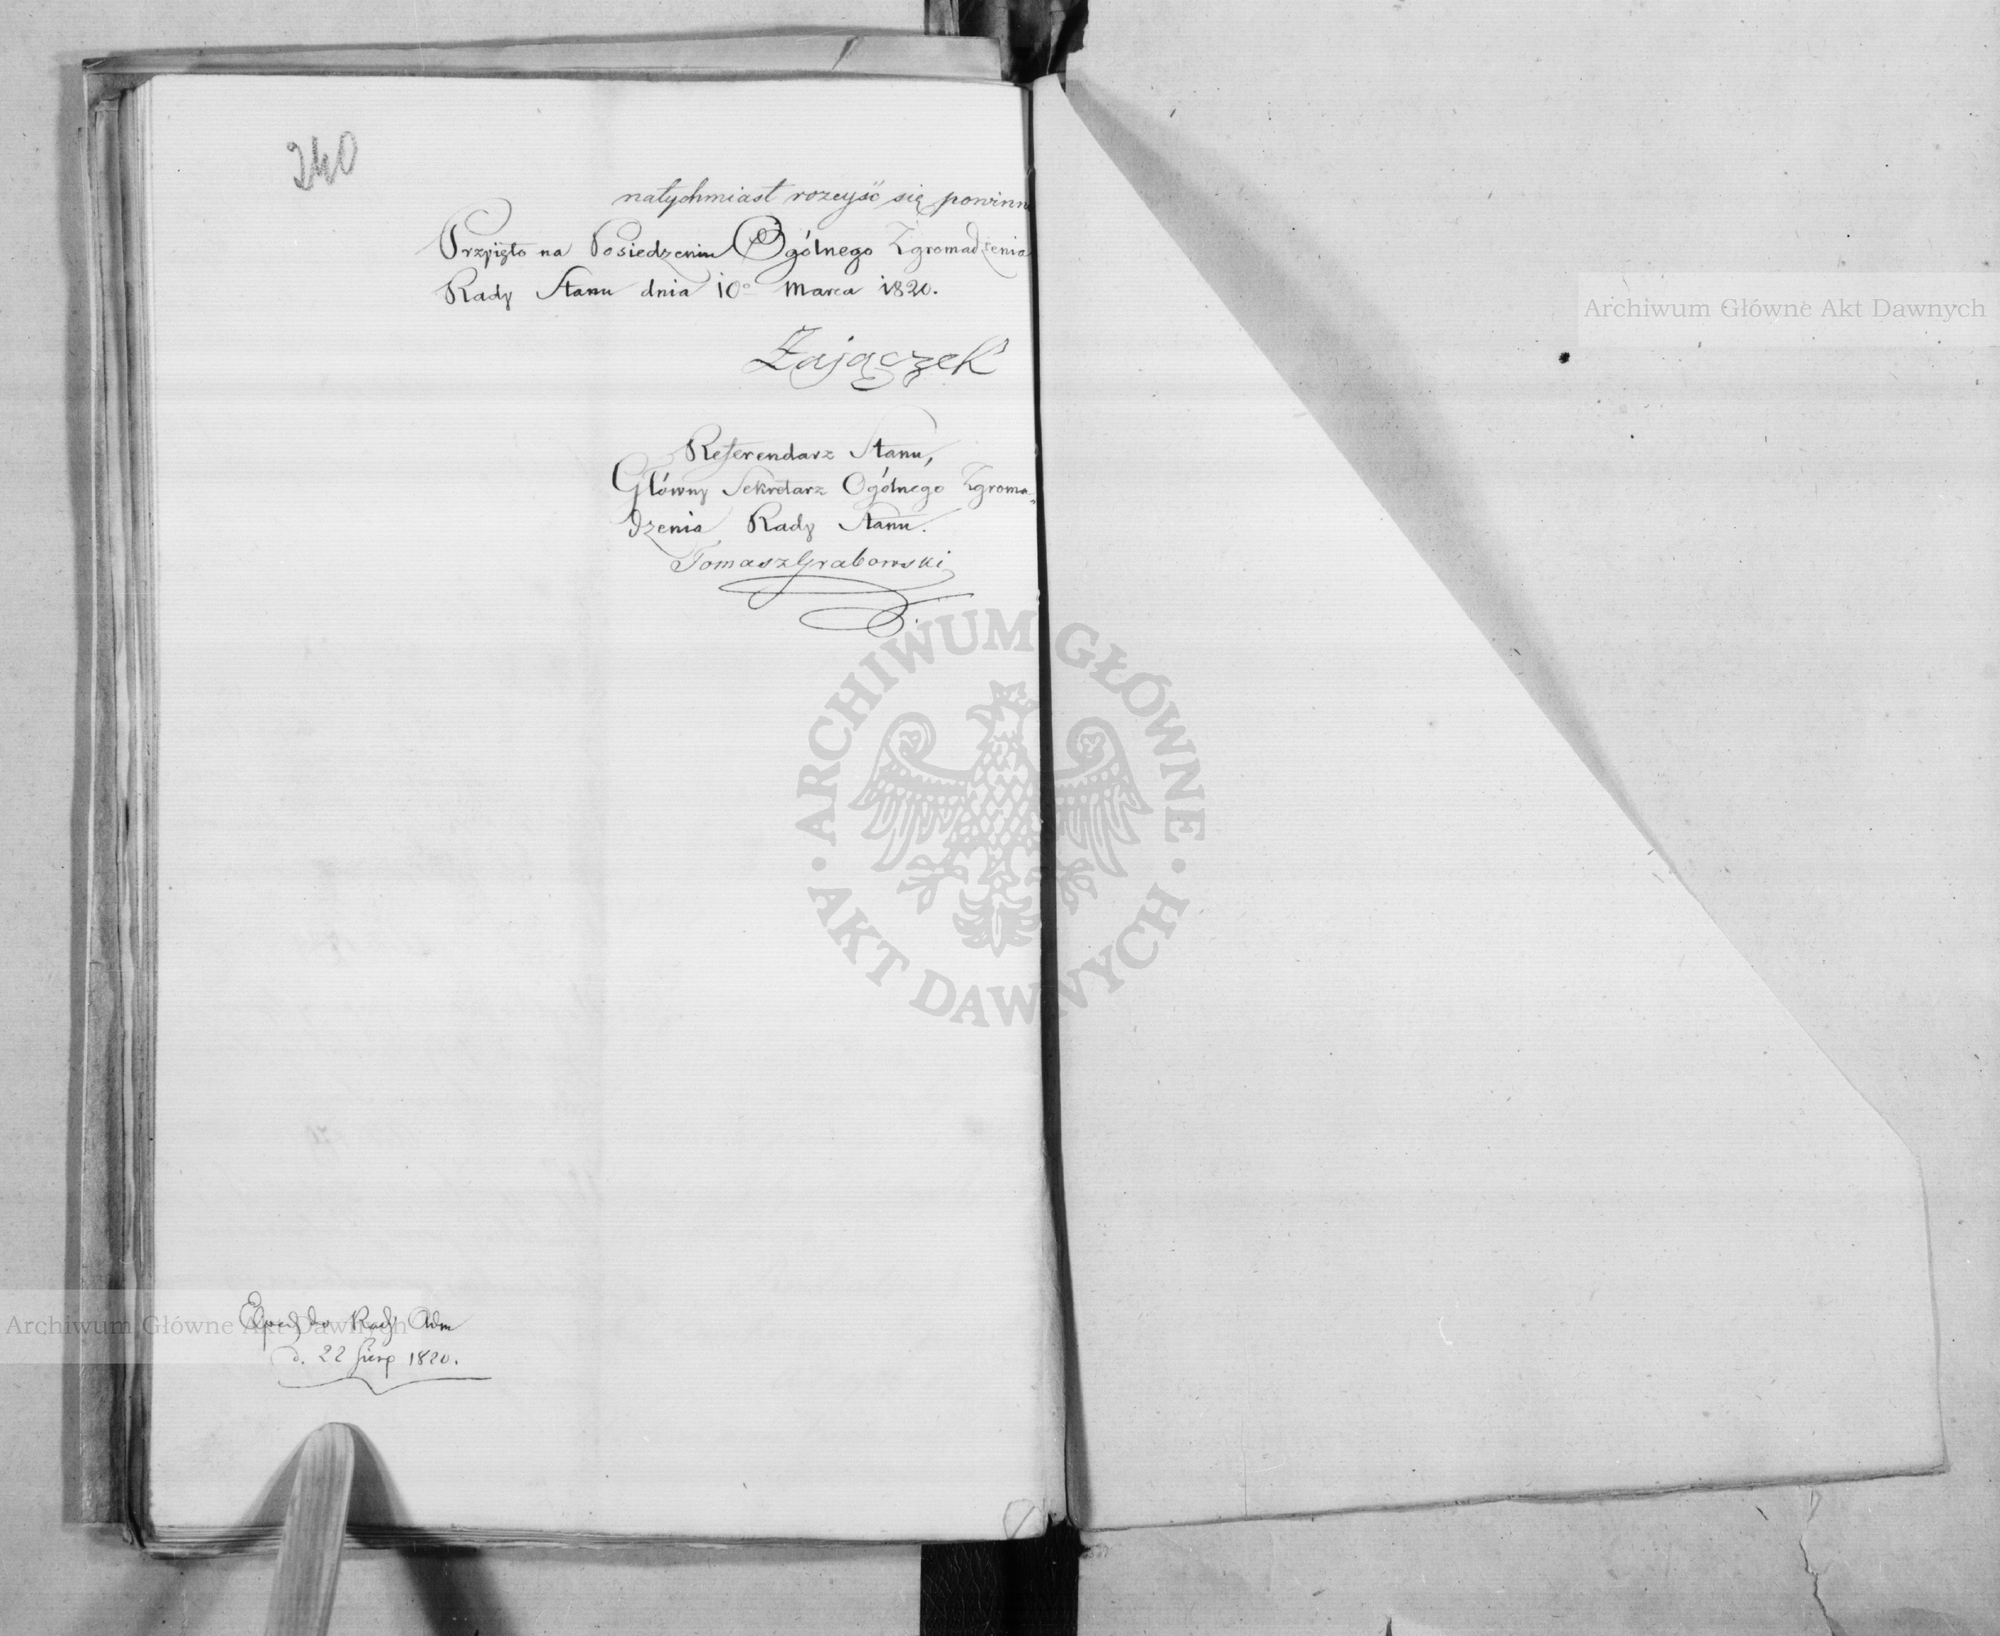 240
natychmiast rozeyść się powinn
Przyięto na Posiedzeniu Ogólnego Zgromadzenia
Rady Stanu dnia 10º Marca 1820.
Zajączek
Referendarz Stanu,
Główny Sekretarz Ogólnego Zgroma-
dzenia Rady Stanu.
Tomasz Grabowski
Exped do Rady Adm
d. 22 Sierp 1820.
Archiwum Główne Akt Dawnych
Archiwum Główne Akt Dawnych
ARCHIWUM GŁÓWNE · AKT DAWNYCH ·